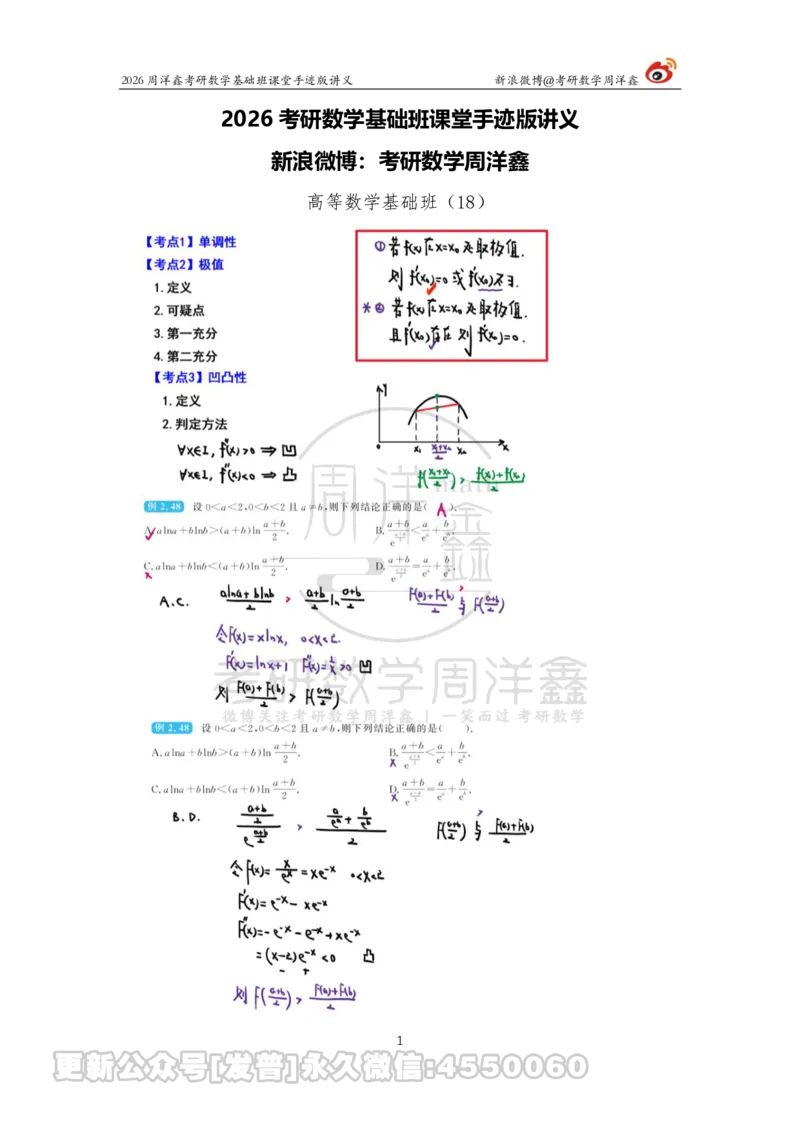 2026 周洋鑫考研数学基础班课堂手迹版讲义 新浪微博@考研数学周洋鑫
2026 考研数学基础班课堂手迹版讲义
新浪微博：考研数学周洋鑫
高等数学基础班（18）
【考点1】单调性
【考点2】极值
1. 定义
2. 可疑点
3. 第一充分
4. 第二充分
① 若f(x)在x=x₀处取极值.
则 f'(x₀)=0 或 f'(x₀)不∃.
* ② 若f(x)在x=x₀处取极值.
且f'(x₀)存在 则 f'(x₀)=0.
【考点3】凹凸性
1. 定义
2. 判定方法
∀x∈I, f''(x)>0 ⇒ 凹
∀x∈I, f''(x)<0 ⇒ 凸
y
0 x₁ (x₁+x₂)/2 x₂ x
f((x₁+x₂)/2) > (f(x₁)+f(x₂))/2
周洋鑫
math
例 2.48 设 0<a<2,0<b<2 且 a≠b,则下列结论正确的是( A ).
A. alna+blnb>(a+b)ln (a+b)/2. B. (a+b)/e^((a+b)/2) < a/e^a + b/e^b.
C. alna+blnb<(a+b)ln (a+b)/2. D. (a+b)/e^((a+b)/2) = a/e^a + b/e^b.
A.C. (alna+blnb)/2 > (a+b)/2 ln (a+b)/2 (F(a)+F(b))/2 > 与 F((a+b)/2)
令F(x)=xlnx, 0<x<2.
F'(x)=lnx+1 F''(x)=1/x>0 凹
则 (F(a)+F(b))/2 > F((a+b)/2)
考研数学周洋鑫
微博关注考研数学周洋鑫 | 一笑而过 考研数学
例 2.48 设 0<a<2,0<b<2 且 a≠b,则下列结论正确的是( ).
A. alna+blnb>(a+b)ln (a+b)/2. B. (a+b)/e^((a+b)/2) < a/e^a + b/e^b.
C. alna+blnb<(a+b)ln (a+b)/2. D. (a+b)/e^((a+b)/2) = a/e^a + b/e^b.
B.D. ((a+b)/2)/e^((a+b)/2) > (a/e^a + b/e^b)/2 F((a+b)/2) > 与 (F(a)+F(b))/2
令F(x)= x/e^x = xe^-x 0<x<2
F'(x)= e^-x - xe^-x
F''(x)= -e^-x - e^-x + xe^-x
=(x-2)e^-x <0 凸
- +
则 F((a+b)/2) > (F(a)+F(b))/2
1
更新公众号[发普]永久微信:4550060